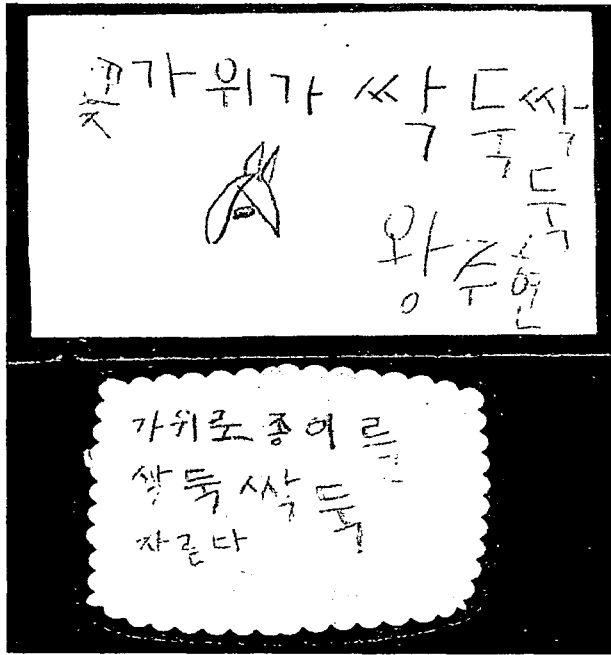 꽃가위가 싹둑싹
둑
왕주현
가위로 종이를
싹둑 싹둑
자른다